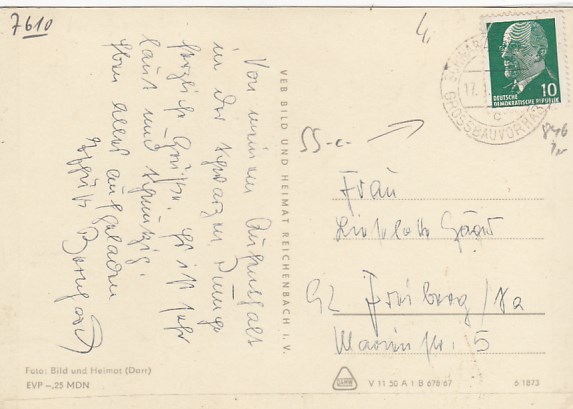 7610
4,
Von meinem Aufenthalt
in der Schwarzen Pumpe
herzliche Grüße. Es ist sehr
laut und schmutzig.
eben alles aufgeladen
Bernhard
VEB BILD UND HEIMAT REICHENBACH i. V.
10
DEUTSCHE
DEMOKRATISCHE REPUBLIK
17.
GROSSBAUVORHABEN
c
846
55-c-
Frau
Lieselotte
92 Freiberg/Sa
Marienstr. 5
Foto: Bild und Heimat (Darr)
EVP –,25 MDN
V 11 50 A 1 B 678 67
6 1875